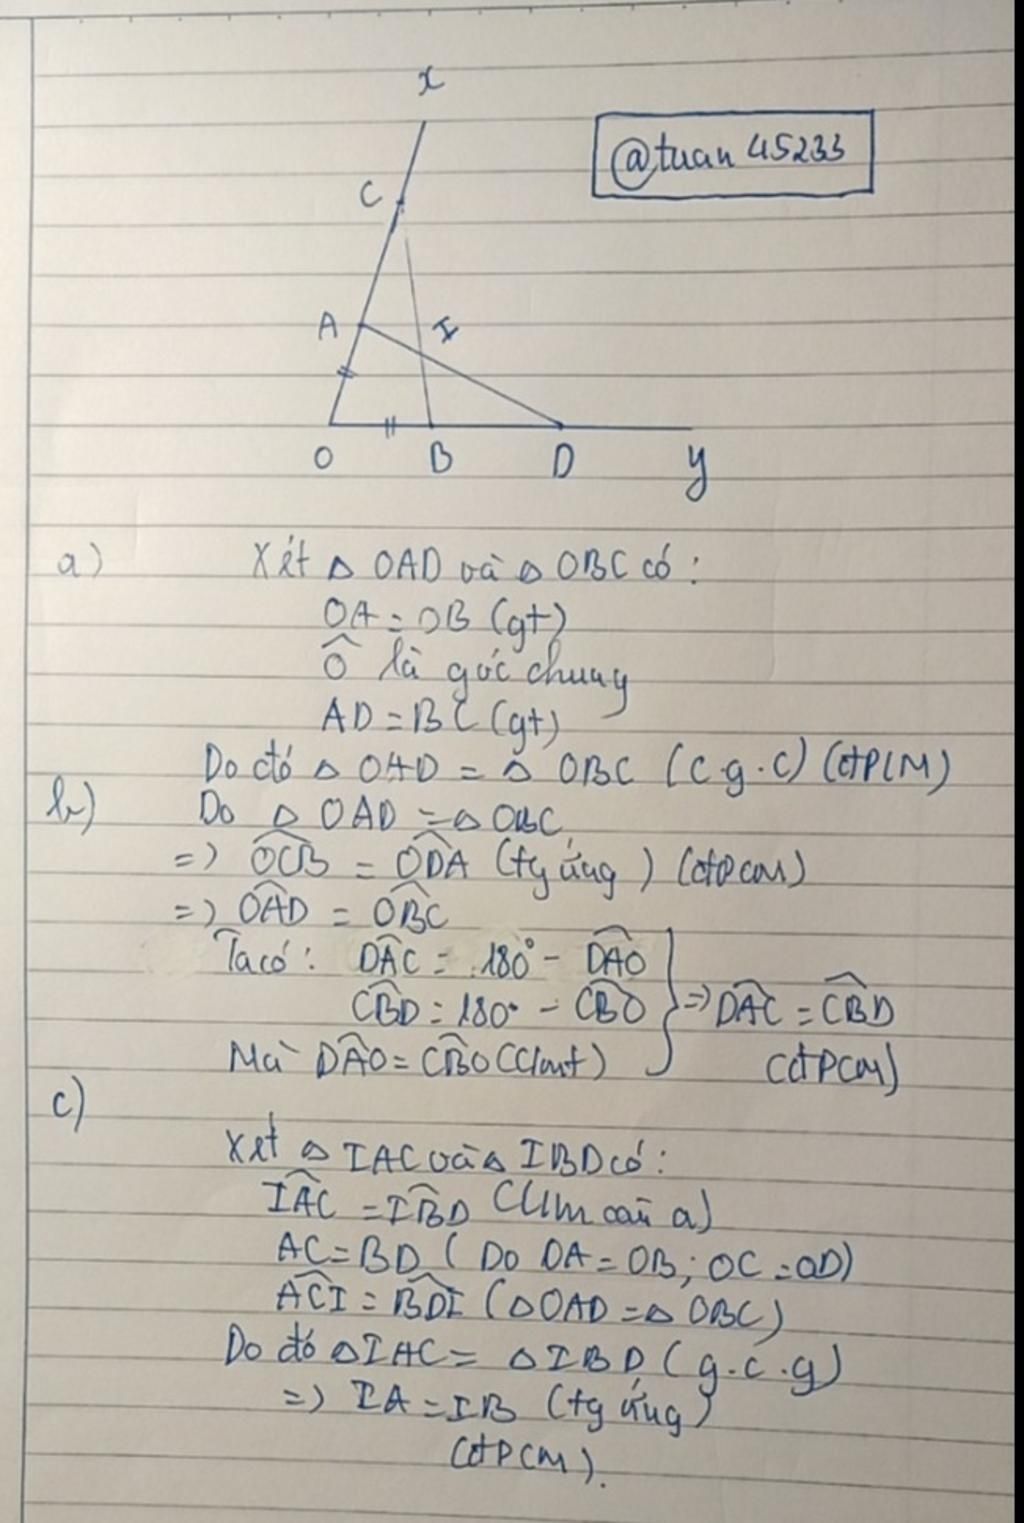 x
@tuan 45233
C
A
I
O
B
D
y
a)
Xét △ OAD và △ OBC có :
OA = OB (gt)
Ô là góc chung
AD = BC (gt)
Do đó △ OAD = △ OBC (c.g.c) (đPCM)
b)
Do △ OAD = △ OBC
=> \widehat{OCB} = \widehat{ODA} (tg ứng) (đPCM)
=> \widehat{OAD} = \widehat{OBC}
Ta có : \widehat{DAC} = 180° - \widehat{DAO}
\widehat{CBD} = 180° - \widehat{CBO}
=> \widehat{DAC} = \widehat{CBD}
Mà \widehat{DAO} = \widehat{CBO} (cmt)
(đPCM)
c)
Xét △ IAC và △ IBD có :
\widehat{IAC} = \widehat{IBD} (câu a)
AC = BD ( Do OA = OB; OC = OD)
\widehat{ACI} = \widehat{BDI} (△OAD = △ OBC)
Do đó △IAC = △IBD (g.c.g)
=> IA = IB (tg ứng)
(đPCM).